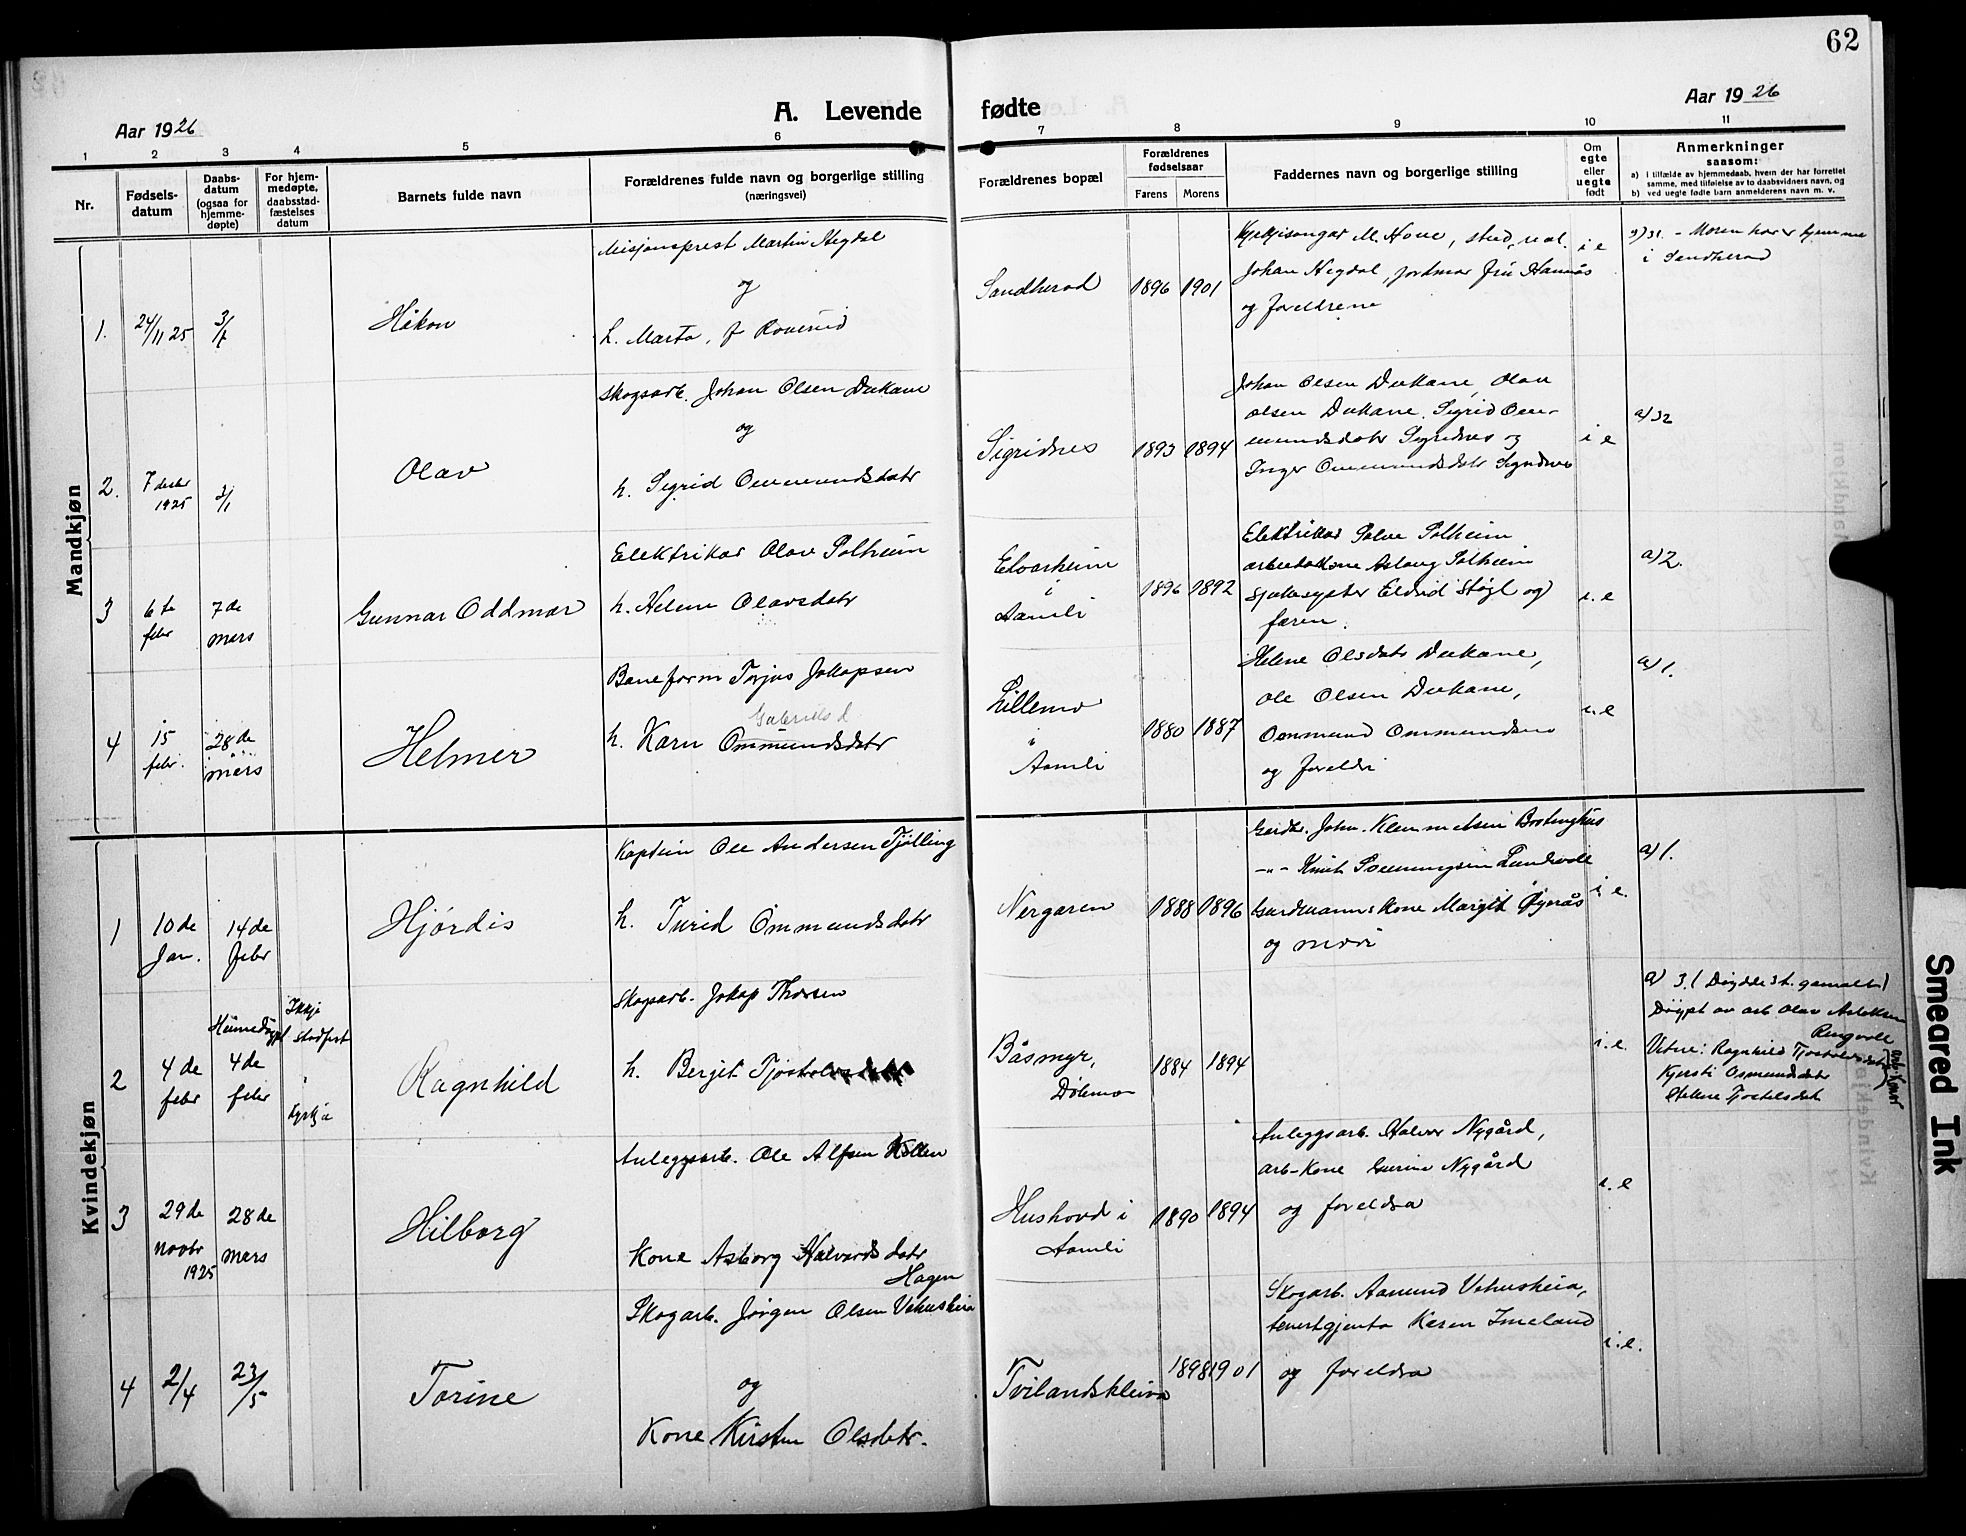 62
A. Levende fødte
Aar 1926
Aar 1926
1 2 3 4 5 6 7 8 9 10 11
Nr.
Fødsels-
datum
Daabs-
datum
(ogsaa for
hjemme-
døpte)
For hjem-
medøpte,
daabsstad-
fæstelses
datum
Barnets fulde navn
Forældrenes fulde navn og borgerlige stilling
(næringsvei)
Forældrenes bopæl
Forældrenes
fødselsaar
Farens Morens
Faddernes navn og borgerlige stilling
Om
egte
eller
uegte
født
Anmerkninger
saasom:
a) i tilfælde av hjemmedaab, hvem der har forrettet
samme, med tilføielse av to daabsvidners navn, og
b) ved uegte fødte barn anmelderens navn m. v.
Mandkjøn
1.
24/11 25
Håkon
Misjonsprest Martin Hegdal
og
h. Marta, f
Sandherad
1896 1901
Kyrkjesongar M. Hove, stud. real.
Johan Hegdal, jordmor fru
og foreldrene
i e
31. - Moren har heime
i Sandherad
2.
7 desbr
1925
3/1
Olav
Skogsarb. Johan Olsen Dukane
og
h. Sigrid Ommundsdatr
Sigridnes
1893 1894
Johan Olsen Dukane, Olav
Olsen Dukane. Sigrid Om-
mundsdatr Sigridnes og
Inger Ommundsdatr Sigridnes
i e
a) 32
3
6te
febr
7de
mars
Gunnar Oddmar
Elektrikar Olav Solheim
h. Helene Olavsdatr
Elvarheim
i
Aamli
1896 1892
Elektrikar Salve Solheim
arbeidarkone Aslaug Solheim
sjukesyster Eldrid Støyl og
faren.
i. e
a) 2.
4
15
febr.
28de
mars
Helmer
Baneform Torjus Jakopsen
Gabrielsd
h. Karn Ommundsdatr
Lillemo
i
Aamli
1880 1887
Helene Olsdatr Dukane,
Ole Olsen Dukane,
Ommund Ommundsen
og foreldri
i. e
a) 1.
Kvindekjøn
1
10de
Jan.
14de
febr
Hjördis
Kaptein Ole Andersen Tjölling
h. Turid Ommundsdatr
Nergaren
1888 1896
Gardbr. John. Klemmetsen
-"- Knut
Gardmannskone Margit Øynås
og mori
i. e.
a) 1.
2
4de
febr
Heimedøypt
4de
febr
Ikkje
stadfest
i
kyrkja
Ragnhild
Skogsarb. Jakop Thorsen
h. Bergit
Båsmyr,
Dölemo
1884 1894
i. e.
a) 3. (Døydde 3 t. gamalt)
Døypt av arb Olav Asleksen
Ringvoll
Vitne: Ragnhild
Kjersti Osmundsdatr
Helene Tjostolsdat
3
29de
novbr
1925
28de
mars
Hilborg
Anleggsarb. Ole Alfsen
Kone Asborg Halvardsdatr
Hagen
Hushovd i
Aamli
1890 1894
Anleggsarb. Halvor Nygård,
arb-kone Gurine Nygård
og foreldra
i. e
4
2/4
23/5
Torine
Skogarb. Jørgen Olsen Vehusheia
og
Kone Kirsten Olsdatr.
Tvilandskleiva
1898 1901
Skogarb. Aanund Vehusheia,
tenestgjenta Karen Imeland
og foreldra
i. e.
Smeared Ink